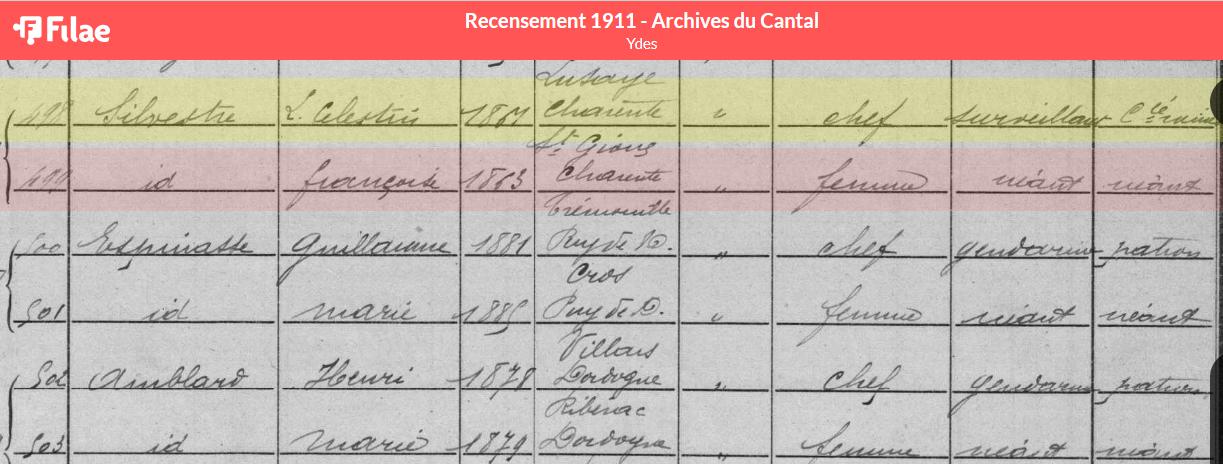 Filae
Recensement 1911 - Archives du Cantal
Ydes
498 Silvestre L. Celestin Lusaye Charente " chef surveillant Cie
499 id françoise 1863 St Charente " femme néant néant
500 Espinasse Guillaume 1881 Trémouille Puy de D. " chef gendarme patron
501 id marie 1885 Cros Puy de D. " femme néant néant
502 Amblard Henri 1878 Villars Dordogne " chef gendarme patron
503 id marie 1879 Riberac Dordogne " femme néant néant